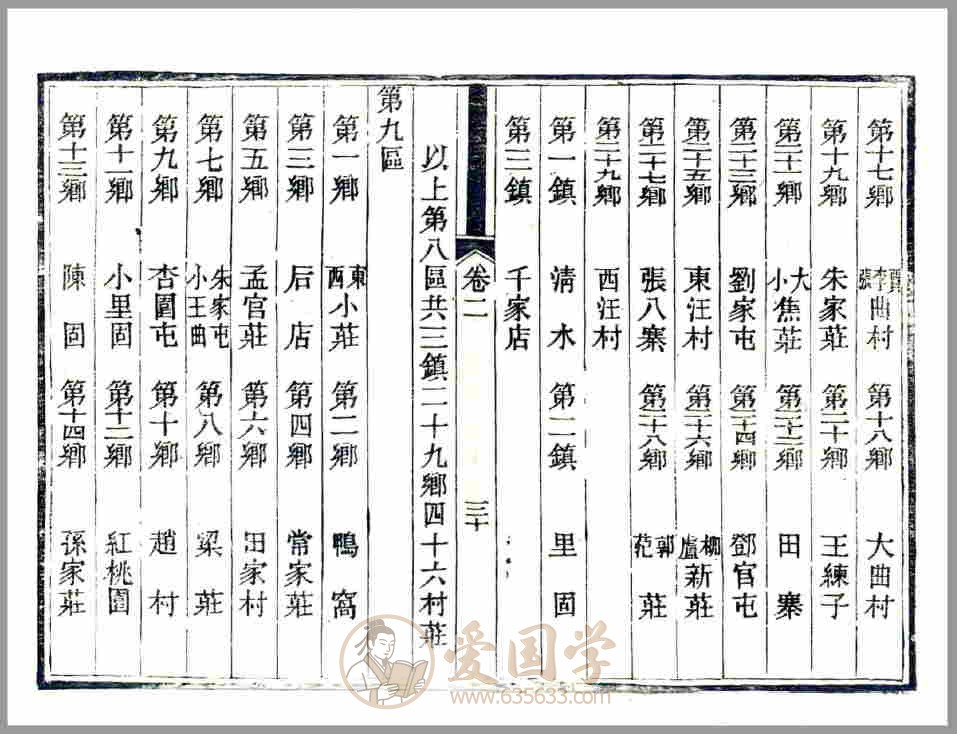 第十七鄉　賈李張曲村　第十八鄉　大曲村
第十九鄉　朱家莊　第二十鄉　王練子
第二十一鄉　大小焦莊　第二十二鄉　田寨
第二十三鄉　劉家屯　第二十四鄉　鄧官屯
第二十五鄉　東汪村　第二十六鄉　柳盧新莊
第二十七鄉　張八寨　第二十八鄉　郭范莊
第二十九鄉　西汪村
第一鎮　清水　第二鎮　里固
第三鎮　千家店
卷二　三十
以上第八區共三鎮二十九鄉四十六村莊
第九區
第一鄉　東西小莊　第二鄉　鴨窩
第三鄉　后店　第四鄉　常家莊
第五鄉　孟官莊　第六鄉　田家村
第七鄉　朱家屯小王曲　第八鄉　梁莊
第九鄉　杏園屯　第十鄉　趙村
第十一鄉　小里固　第十二鄉　紅桃園
第十三鄉　陳固　第十四鄉　孫家莊
爱国学
www.635633.com